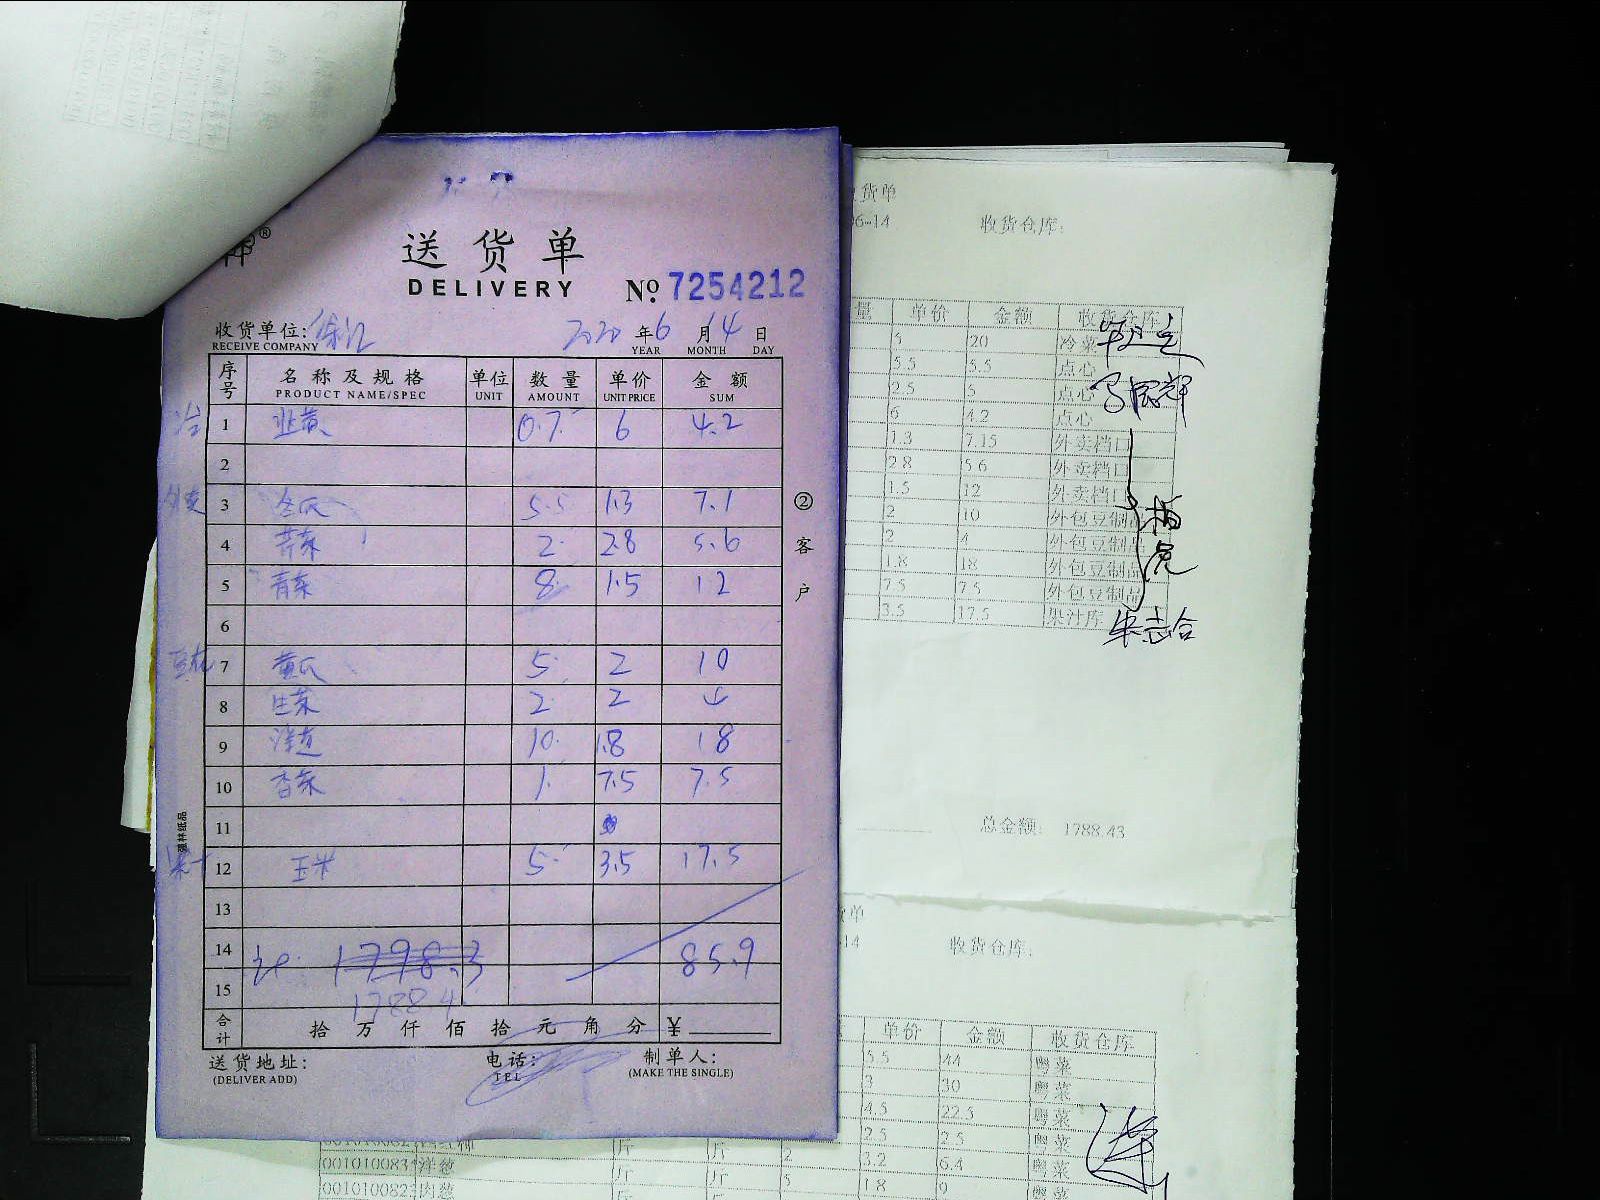 送货单
DELIVERY
№ 7254212
收货单位: 徐汇 2020 年 6 月 14 日
RECEIVE COMPANY YEAR MONTH DAY
序号 名称及规格 单位 数量 单价 金额
PRODUCT NAME/SPEC UNIT AMOUNT UNIT PRICE SUM
冷 1 韭黄 0.7 6 4.2
2
外卖 3 冬瓜 5.5 1.3 7.1
4 芹菜 2 2.8 5.6
5 青菜 8 1.5 12
6
7 黄瓜 5 2 10
8 生菜 2 2 4
9 洋葱 10 1.8 18
10 香菜 1 7.5 7.5
11
12 玉米 5 3.5 17.5
13
14 1798.3 85.9
15 1788.4
合计 拾 万 仟 佰 拾 元 角 分 ¥
送货地址: 电话: 制单人:
(DELIVER ADD) TEL (MAKE THE SINGLE)
②客户
强林纸品
货单
06-14 收货仓库:
量 单价 金额 收货仓库
5 20 冷菜
5.5 5.5 点心
2.5 5 点心
6 4.2 点心
1.3 7.15 外卖档口
2.8 5.6 外卖档口
1.5 12 外卖档口
2 10 外包豆制品
2 4 外包豆制品
1.8 18 外包豆制品
7.5 7.5 外包豆制品
3.5 17.5 果汁库
朱志合
总金额: 1788.43
货单
14 收货仓库:
单价 金额 收货仓库
5.5 44 粤菜
3 30 粤菜
4.5 22.5 粤菜
2.5 2.5 粤菜
洋葱 斤 斤 2 3.2 6.4 粤菜
肉葱 斤 斤 5 1.8 9 粤菜